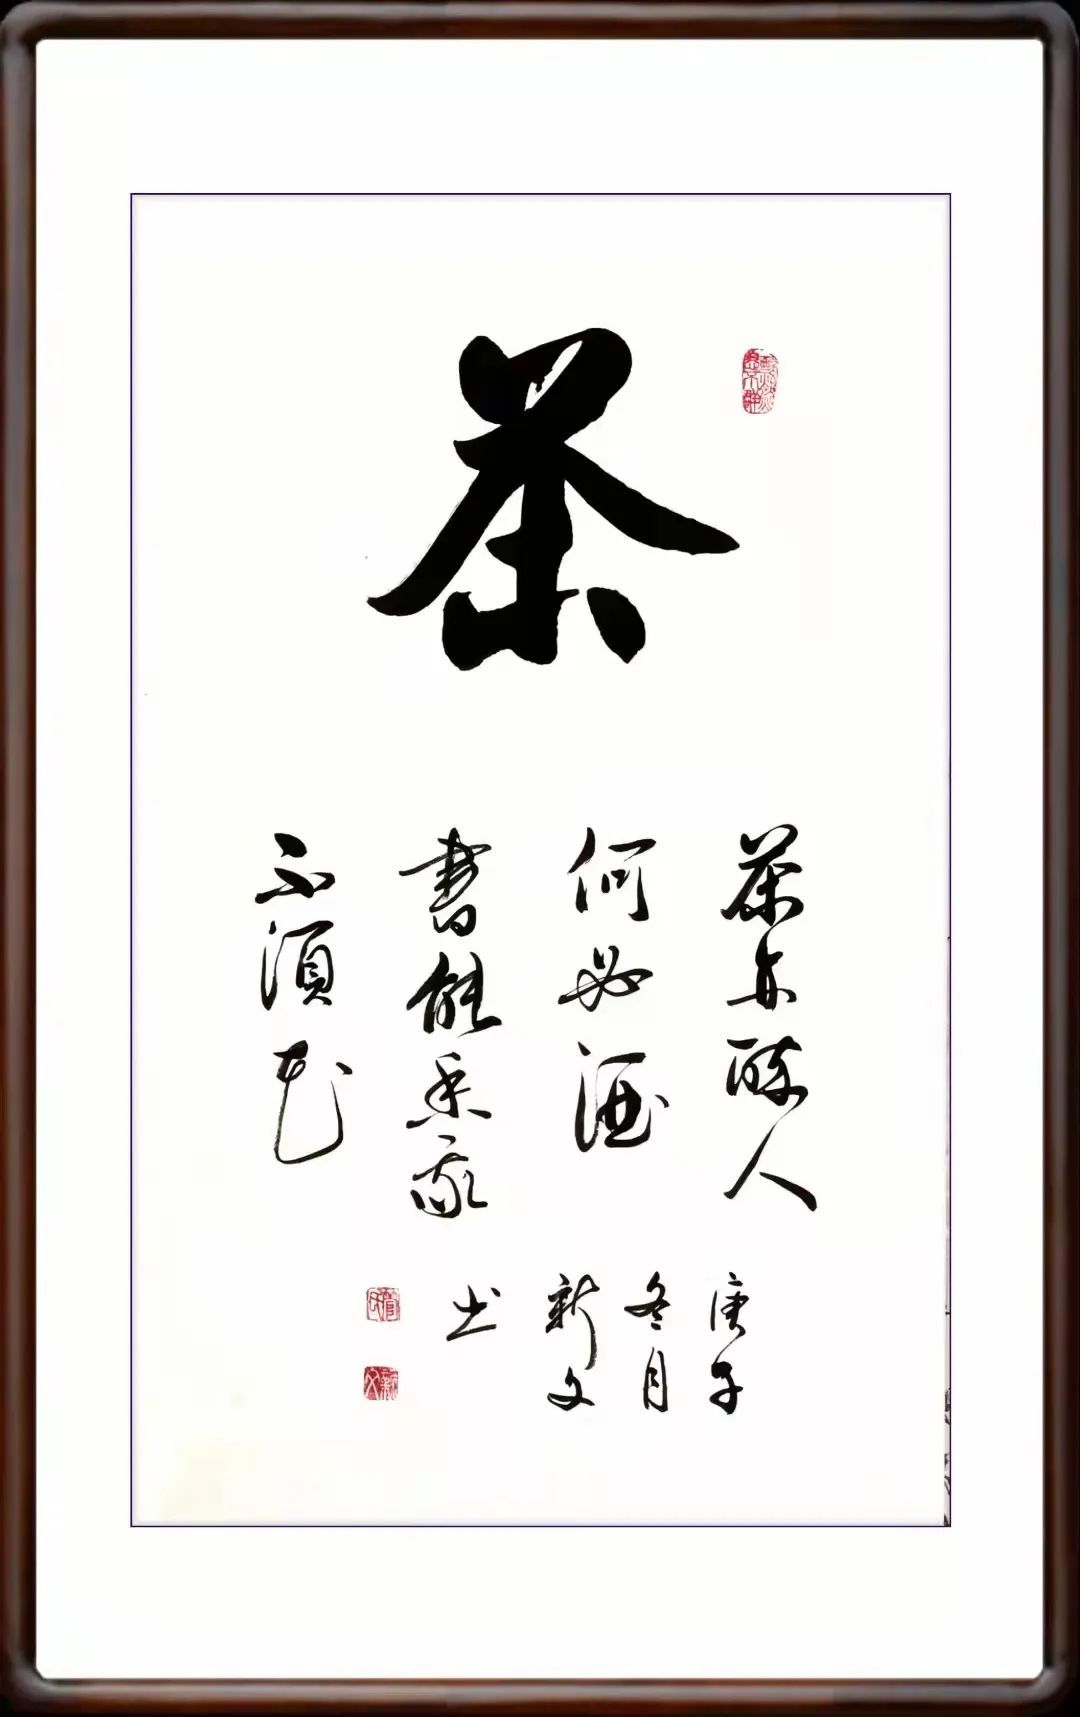 茶
茶亦醉人
何必酒
書能香我
不須花
庚子
冬月
新文
书
管氏
新文